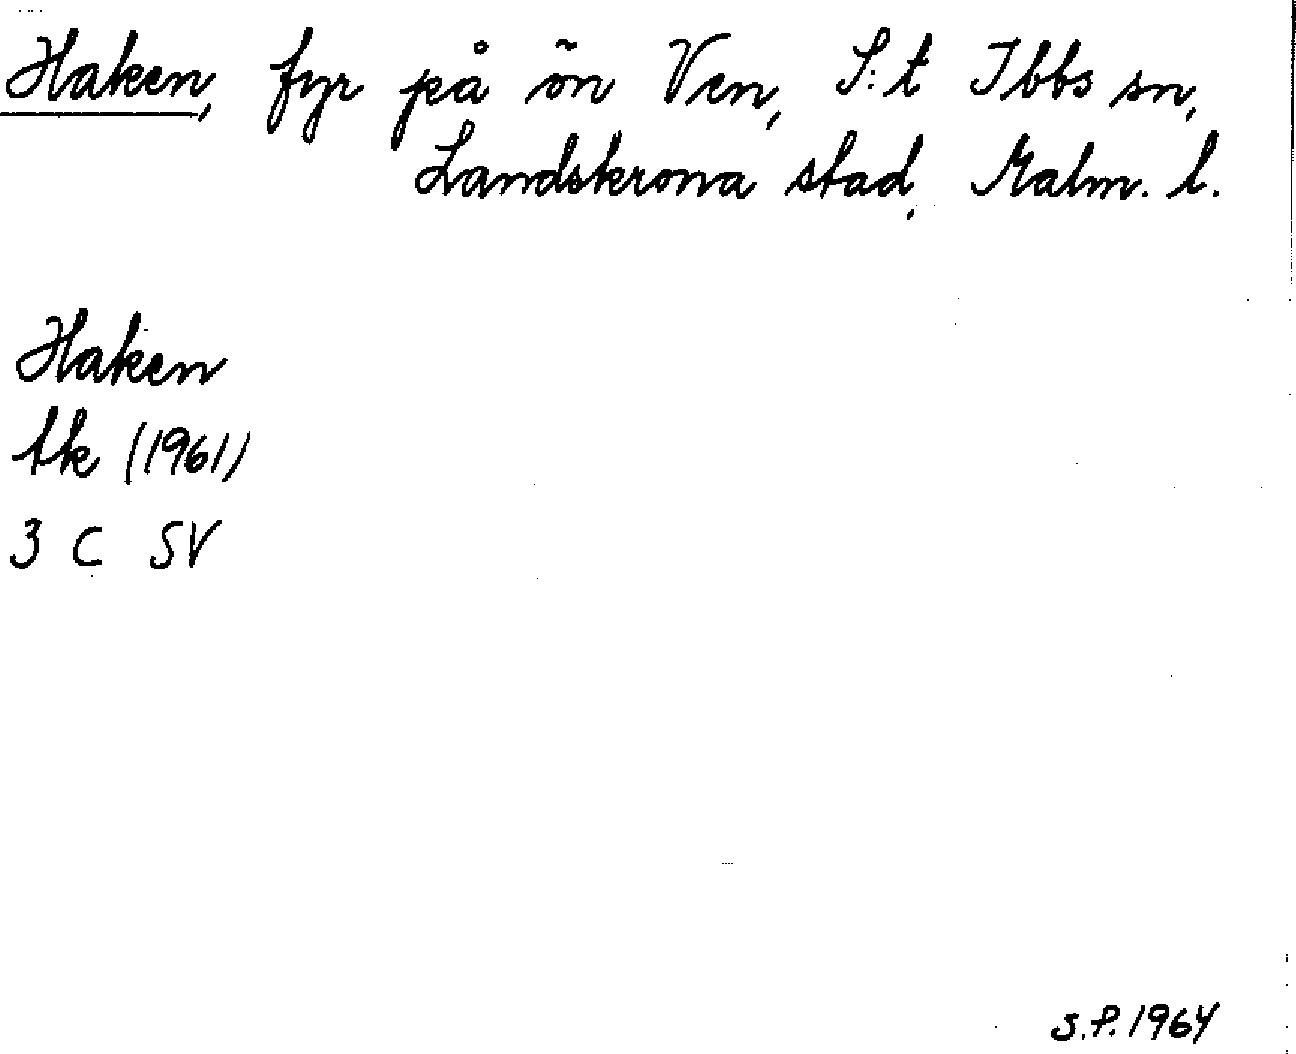 Haken, fyr på ön Ven, S:t Ibbs sn,
Landskrona stad, Malm. l.
Haken
tk (1961)
3 C SV
S.P. 1964